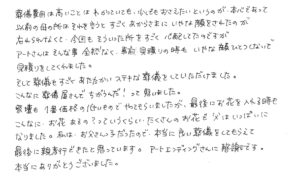 葬儀費用は高いことはわかっていても、少しでもおさえたいというのが本心であって
以前の母の所はそれを言うと、すごくあからさまにいやな顔をされたのが
忘れられなくて、今回もそういった所をすごく心配してたのですが
アートさんはそんな事全然なく、事前見積りの時もいやな顔ひとつしないで
見積りをしてくれました。
そして葬儀もすごくあたたかいステキな葬儀をしていただけました。
こんなに葬儀屋さんでちがうんだ!って思いました。
祭壇も1番価格の低いものでやってもらいましたが、最後にお花を入れる時も
こんなにお花あるの?っていうくらいたくさんのお花で父はいっぱいに
なりました。私は、お父さん子だったので、本当に良い葬儀をしてもらえて
最後に親孝行ができたと思っています。アートエンディングさんに結論です。
本当にありがとうございました。